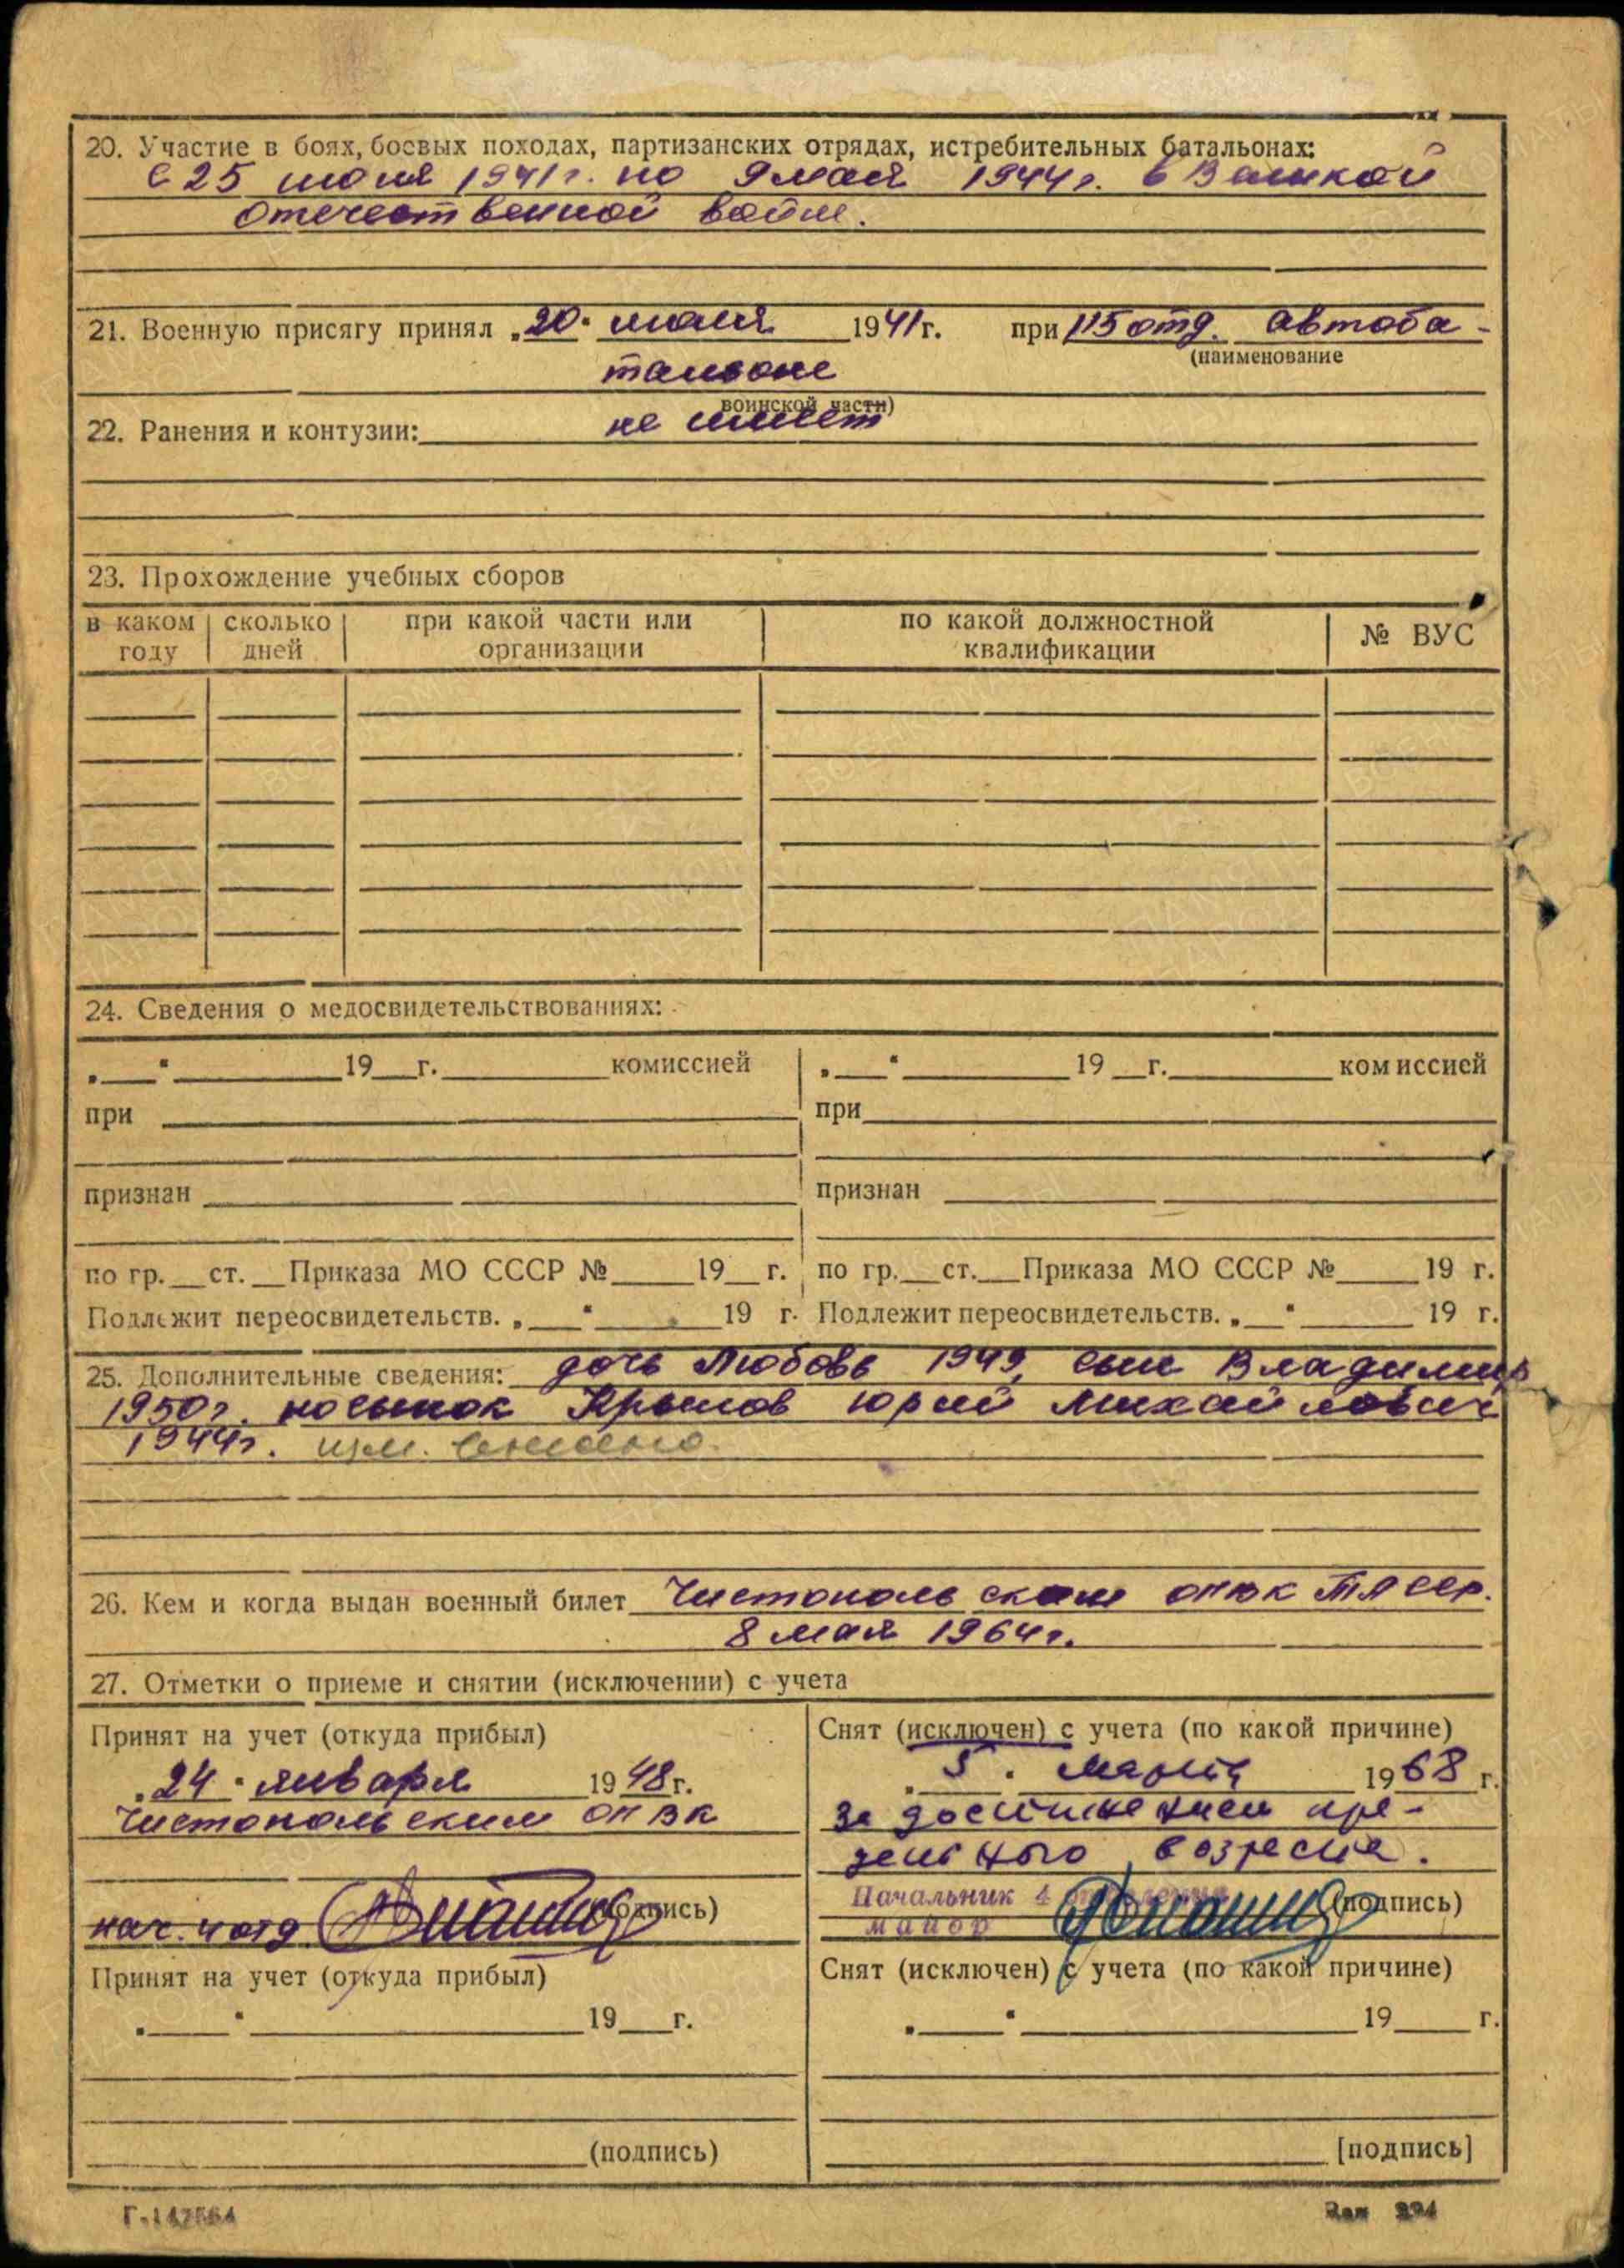 20. Участие в боях, боевых походах, партизанских отрядах, истребительных батальонах:
С 25 июня 1941г. по 9 мая 1944г. в Великой
Отечественной войне.
21. Военную присягу принял „20" июля 1941г. при 115 отд. автоба-
(наименование
тальоне
воинской части)
22. Ранения и контузии: не имеет
23. Прохождение учебных сборов
в каком году сколько дней при какой части или организации по какой должностной квалификации № ВУС
24. Сведения о медосвидетельствованиях:
„___" ______ 19__г. ______ комиссией „___" ______ 19__г. ______ комиссией
при при
признан признан
по гр.__ст.__Приказа МО СССР №____19__г. по гр.__ст.__Приказа МО СССР №____19 г.
Подлежит переосвидетельств. „___" ____ 19 г. Подлежит переосвидетельств. „___" ____ 19 г.
25. Дополнительные сведения: дочь Любовь 1949, сын Владимир
1950г. посынок Крылов Юрий Михайлович
1944г.
26. Кем и когда выдан военный билет Чистопольским ОГВК ТАССР.
8 мая 1964г.
27. Отметки о приеме и снятии (исключении) с учета
Принят на учет (откуда прибыл)
„24" января 1948г.
Чистопольским ОГВК
нач. 4 отд (подпись)
Снят (исключен) с учета (по какой причине)
„5" марта 1968 г.
За достижением пре-
дельного возраста.
Начальник 4 отделения
майор (подпись)
Принят на учет (откуда прибыл)
„____" ______ 19__г.
(подпись)
Снят (исключен) с учета (по какой причине)
„____" ______ 19____ г.
[подпись]
Г-147564 Зак 394